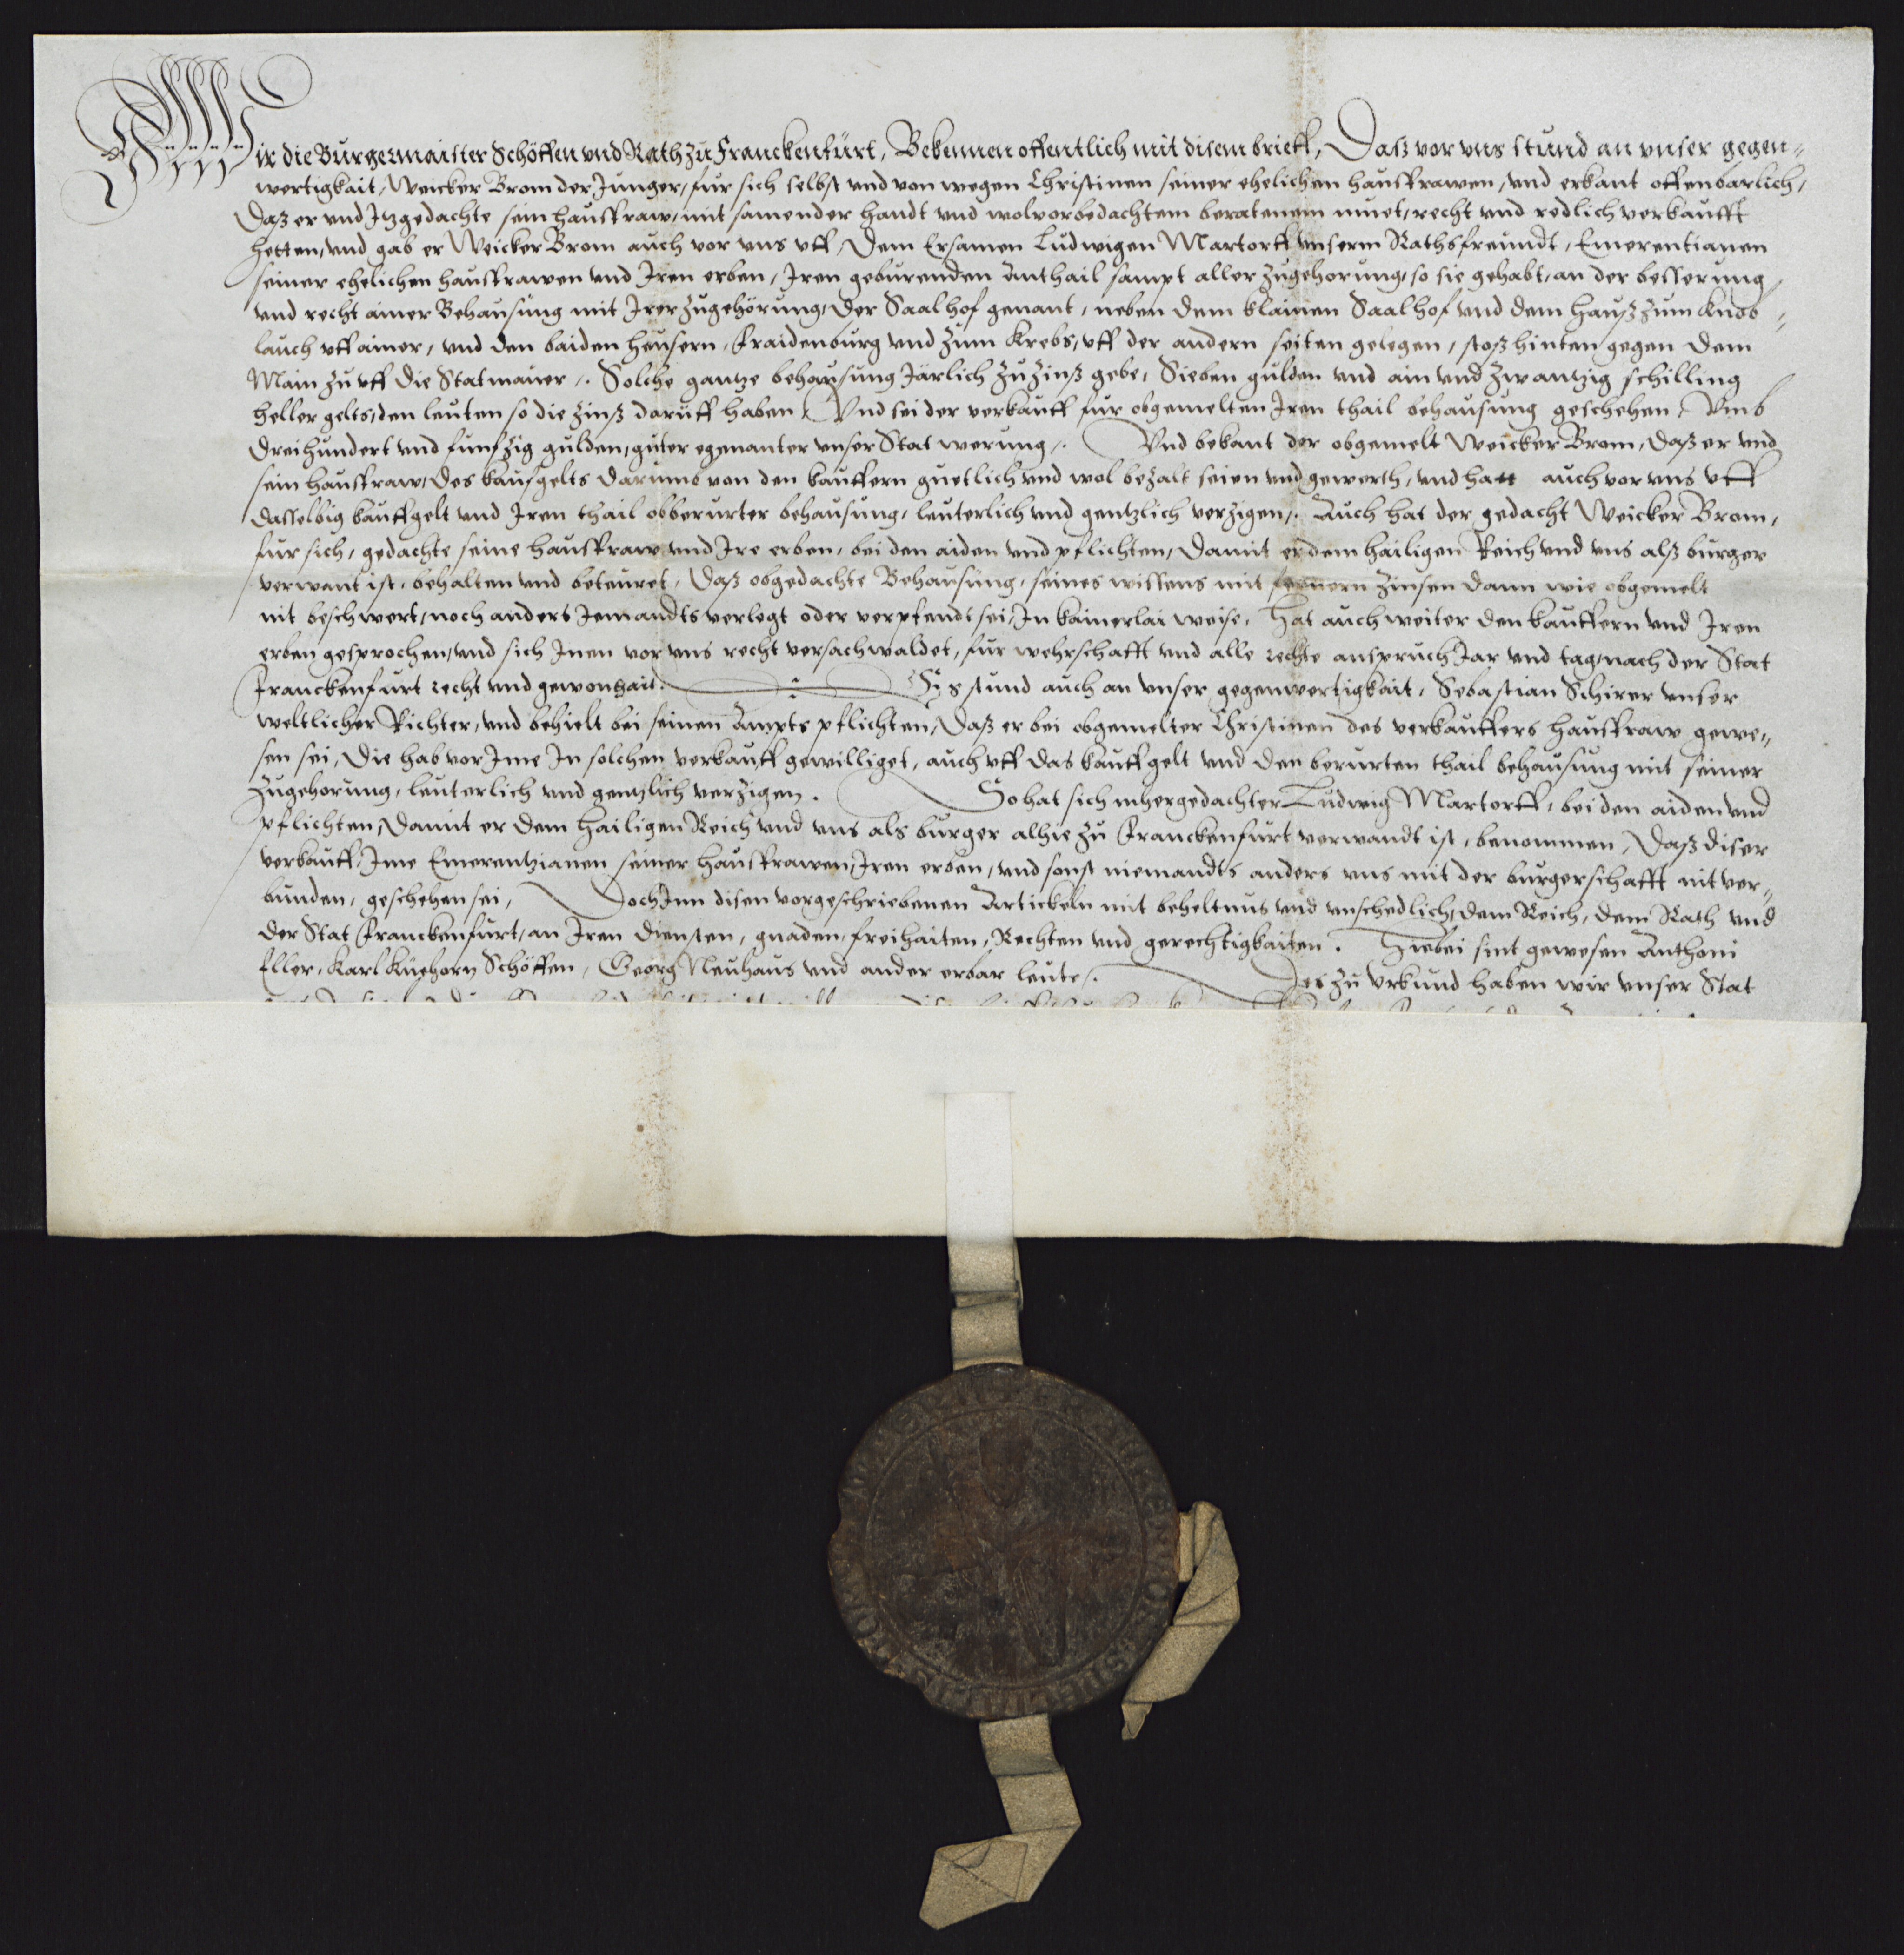 Wir die Burgermaister Schöffen vnd Rath zu Franckenfurt, Bekennen offentlich mit disem brieff, Daß vor vns stund an vnser gegen-
wertigkait, Weicker Brom der Junger, fur sich selbst vnd von wegen Christinen seiner ehelichen hausfrawen, vnd erkant offenbarlich,
Daß er vnd Itzgedachte sein hausfraw, mit samender handt vnd wolvorbedachtem beratenem muet, recht vnd redlich verkaufft
hetten, vnd gab er Weicker Brom auch vor vns vff, Dem Ersamen Ludwigen Martorff vnserm Rathsfreundt, Emerentianen
seiner ehelichen hausfrawen vnd Iren erben, Iren geburenden Anthail sampt aller zugehorung, so sie gehabt, an der besserung
vnd recht ainer Behausung mit Irer zugehörung, Der Saalhof genant, neben dem klainen Saalhof vnd dem Hauß zum Knob-
lauch vff ainer, vnd den baiden heusern, Fraidenburg vnd zum Krebs, vff der andern seiten gelegen, stoß hinten gegen dem
Main zu vff die Statmauer. Solche gantze behausung Järlich zu zinß gebe, Sieben gulden vnd ain vnd zwantzig schilling
heller gelts, den leuten so die zinß daruff haben, Vnd sei der verkauff fur obgemelten Iren thail behausung geschehen, Vmb
Dreihundert vnd funfzig gulden, guter egenanter vnser Stat werung. Vnd bekant der obgemelt Weicker Brom, daß er vnd
sein hausfraw, des kaufgelts darumb von den kauffern guetlich vnd wol bezalt seien vnd gewerth, vnd hatt auch vor vns vff
dasselbig kauffgelt vnd Iren thail obberurter behausung, leuterlich vnd gentzlich verzigen. Auch hat der gedacht Weicker Brom,
fur sich, gedachte seine hausfraw vnd Ire erben, bei den aiden vnd pflichten, Damit er dem hailigen Reich vnd vns alß burger
verwant ist, behalten vnd beteuret, Daß obgedachte Behausung, seines wissens mit fernern zinsen dann wie obgemelt
nit beschwert, noch anders Iemandts verlegt oder verpfendt sei, In kainerlai weise, Hat auch weiter den kauffern vnd Iren
erben gesprochen, vnd sich Inen vor vns recht versachwaldet, fur wehrschafft vnd alle rechte anspruch Jar vnd tag, nach der Stat
Franckenfurt recht vnd gewonhait. Es stund auch an vnser gegenwertigkait, Sebastian Schirer vnser
weltlicher Richter, vnd behielt bei seinen Ampts pflichten, Daß er bei obgemelter Christinen des verkauffers hausfraw gewe-
sen sei, Die hab vor Ime In solchen verkauff gewilliget, auch vff das kauffgelt vnd den berurten thail behausung mit seiner
Zugehorung, leuterlich vnd gentzlich verzigen. So hat sich mhergedachter Ludwig Martorff, bei den aiden vnd
pflichten, Damit er dem Hailigen Reich vnd vns als burger alhie zu Franckenfurt verwandt ist, benommen, Daß diser
verkauff, Ime Emerentzianen seiner hausfrawen, Iren erben, vnd sonst niemandts anders vns mit der burgerschafft nit ver-
bunden, geschehen sei, Doch Inn disen vorgeschriebenen Artickeln mit beheltnus vnd vnschedlich, dem Reich, dem Rath vnd
der Stat Franckenfurt, an Iren Diensten, gnaden, freihaiten, Rechten vnd gerechtigkaiten. Hiebei sint gewesen Anthoni
Eller, Karl Küehorn Schöffen, Georg Neuhaus vnd ander erbar leute. Des zu vrkund haben wir vnser Stat